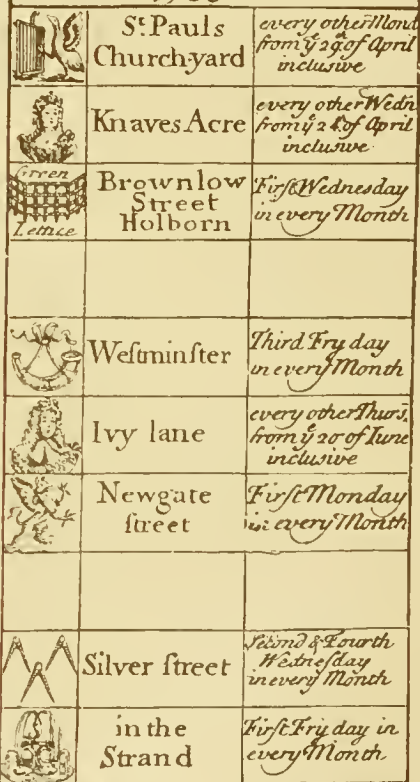 St. Pauls
Church-yard
every other Mond
from ye 29 of April
inclusive
Knaves Acre
every other Wedn
from ye 24 of April
inclusive
Green
Lettice
Brownlow
Street
Holborn
Firſt Wedneſday
in every Month
Weſtminſter
Third Fry day
in every Month
Ivy lane
every other Thurs.
from ye 20 of Iune
inclusive
Newgate
ſtreet
Firſt Monday
in every Month
Silver ſtreet
Second & Fourth
Wedneſday
in every Month
in the
Strand
Firſt Fry day in
every Month